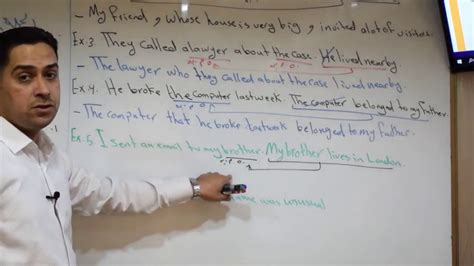 - My friend, whose house is very big, invited alot of visitors.
Ex.3. They called a lawyer about the case. He lived nearby.
- The lawyer who they called about the case lived nearby.
Ex.4. He broke the computer last week. The computer belonged to my father.
- The computer that he broke last week belonged to my father.
Ex.5. I sent an email to my brother. My brother lives in London.
name was unusual